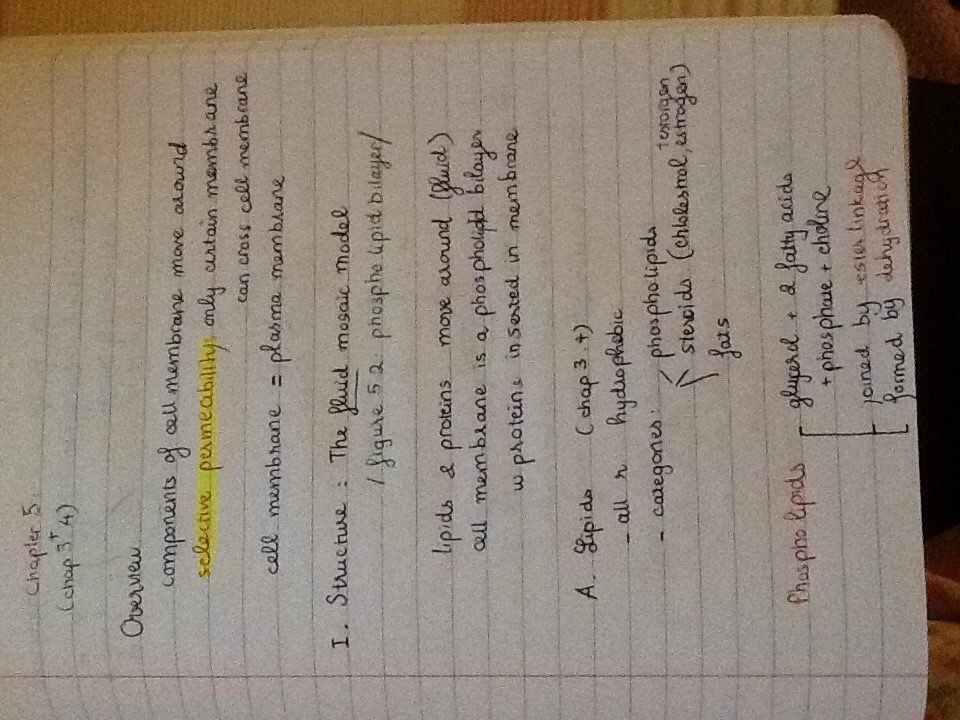 Chapter 5.
(chap 3 + 4)
Overview
components of cell membrane move around
selective permeability: only certain membrane
can cross cell membrane
cell membrane = plasma membrane
I. Structure : The fluid mosaic model
/ figure 5 2: phospho lipid bilayer/
lipids & proteins move around (fluid)
cell membrane is a phospholipid bilayer
w proteins inserted in membrane
A. Lipids (chap 3 +)
- all r hydrophobic
- categories: phospholipids
steroids (cholestrol, estrogen)
fats
Phospho lipids glycerol + 2 fatty acids
+ phosphate + choline
joined by ester linkage
formed by dehydration